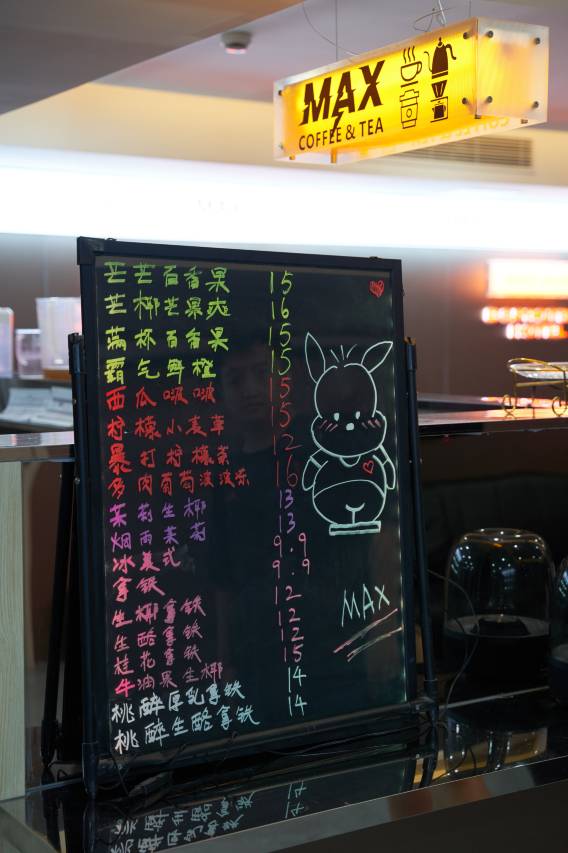 MAX
COFFEE & TEA
芒芒百香果 15
芒椰芒果爽 16
满杯百香果 15
霸气野橙 15
西瓜啵啵 15
柠檬小麦草 15
暴打柠檬茶 12
多肉葡萄波波冻 16
茉莉生椰 13
烟雨茉莉 13
冰美式 9.9
拿铁 9.9
生椰拿铁 12
生酪拿铁 12
桂花拿铁 12
牛油果生椰 15
桃醉厚乳拿铁 14
桃醉生酪拿铁 14
MAX